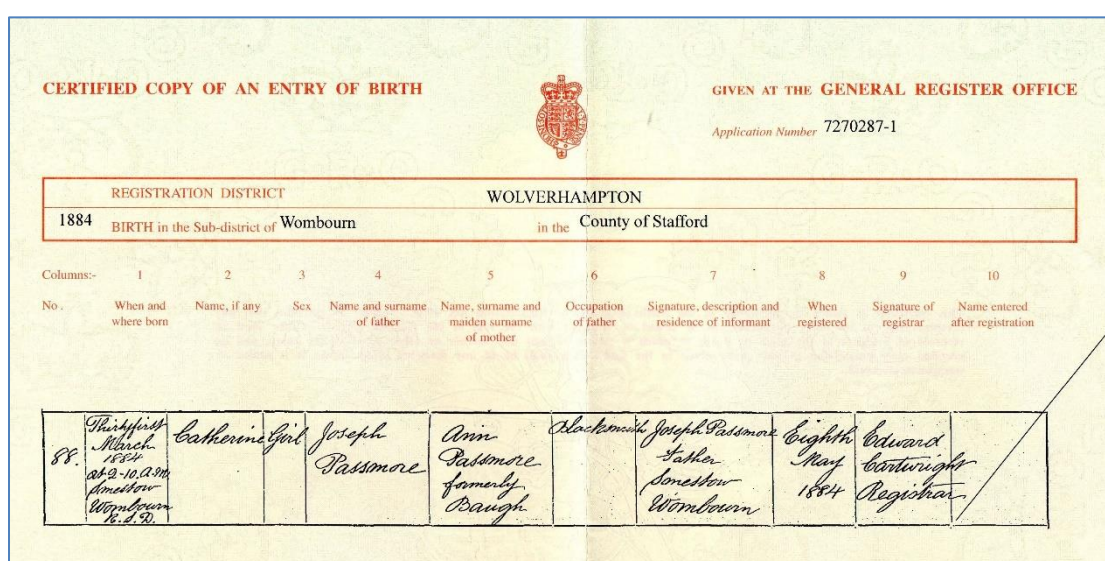 CERTIFIED COPY OF AN ENTRY OF BIRTH
GIVEN AT THE GENERAL REGISTER OFFICE
Application Number 7270287-1
REGISTRATION DISTRICT WOLVERHAMPTON
1884 BIRTH in the Sub-district of Wombourn in the County of Stafford
Columns:- 1 2 3 4 5 6 7 8 9 10
No. When and where born Name, if any Sex Name and surname of father Name, surname and maiden surname of mother Occupation of father Signature, description and residence of informant When registered Signature of registrar Name entered after registration
88.
Thirtyfirst
March
1884
at 2-10 A.M.
Smestow
Wombourn
R.S.D.
Catherine
Girl
Joseph
Passmore
Ann
Passmore
formerly
Baugh
Blacksmith
Joseph Passmore
Father
Smestow
Wombourn
Eighth
May
1884
Edward
Cartwright
Registrar